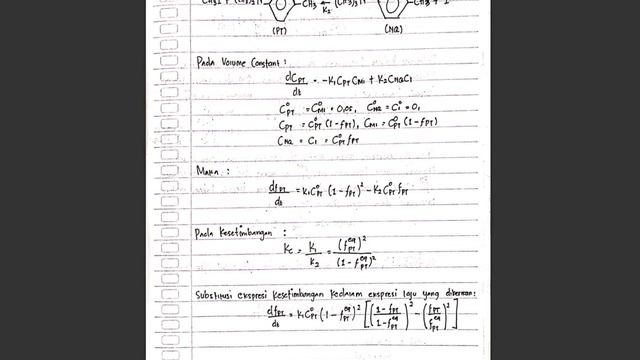 (PT) (NQ)
Pada Volume Constant :
dCPT/dt = -K1CPTCMI + K2CNQCI
C°PT = C°MI = 0,05, C°NQ = C°I = 0,
CPT = C°PT (1-fPT), CMI = C°PT (1-fPT)
CNQ = CI = C°PT fPT
Maka :
dfPT/dt = K1C°PT (1-fPT)² - K2C°PT fPT
Pada Kesetimbangan :
Kc = K1/K2 = (f^eq PT)²/(1-f^eq PT)²
Substitusi ekspresi kesetimbangan kedalam ekspresi laju yang diberikan:
dfPT/dt = K1C°PT (1-f^eq PT)² [((1-fPT)/(1-f^eq PT))² - (fPT/f^eq PT)²]